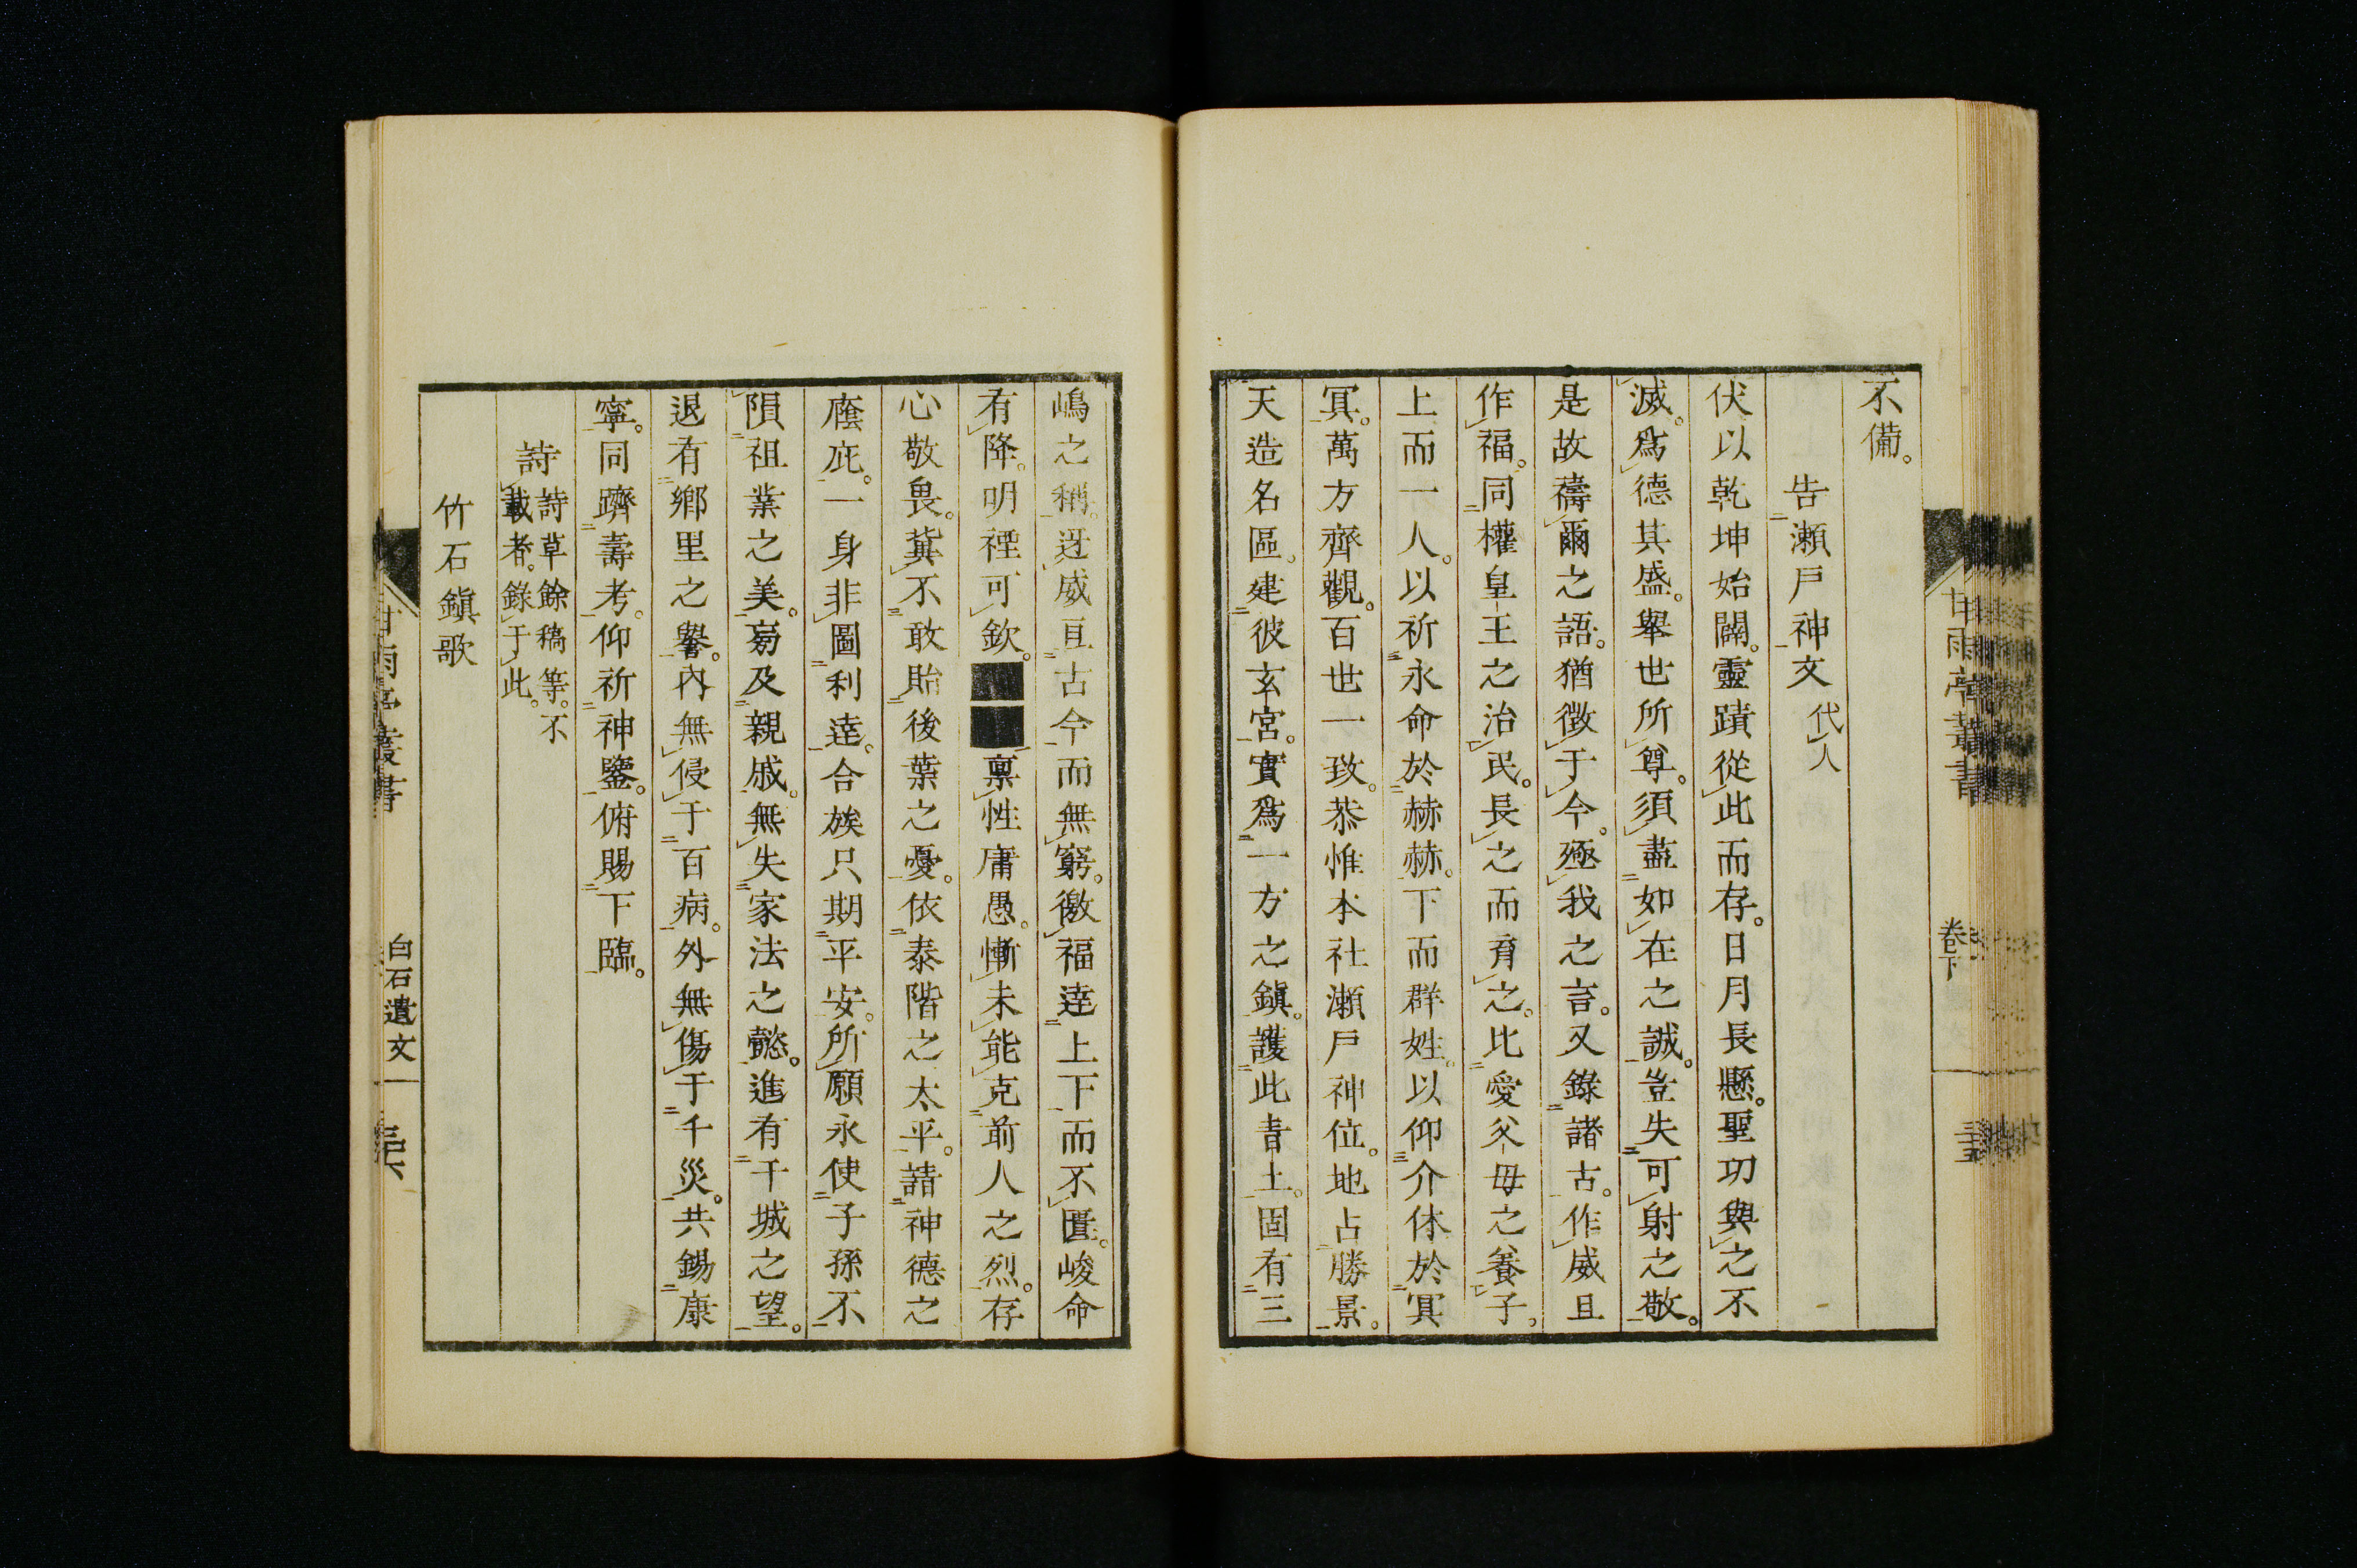 不備。
告瀨戶神文代人
伏以乾坤始闢。靈蹟從此而存。日月長懸。聖功與之不
滅。爲德其盛。舉世所尊。須盡如在之誠。豈失可射之敬。
是故禱爾之語。猶徴于今。殛我之言。又錄諸古。作威且
作福。同權皇王之治民。長之而育之。比愛父母之養子。
上而一人。以祈永命於赫赫。下而群姓。以仰介休於冥
冥。萬方齊觀。百世一致。恭惟本社瀨戶神位。地占勝景。
天造名區。建彼玄宮。實爲一方之鎭。護此青土。固有三
甘雨亭叢書
卷下
嶋之稱。迓威亘古今而無窮。徼福達上下而不匱。峻命
有降。明禋可欽。■■稟性庸愚。慚未能克前人之烈。存
心敬畏。冀不敢貽後葉之憂。依泰階之太平。請神德之
廕庇。一身非圖利達。合族只期平安。所願永使子孫不
隕祖業之美。旁及親戚。無失家法之懿。進有干城之望。
退有鄕里之譽。內無侵于百病。外無傷于千災。共錫康
寧。同躋壽考。仰祈神鑒。俯賜下臨。
詩詩草餘稿等。不
載者。錄于此。
竹石鎭歌
甘雨亭叢書
白石遺文